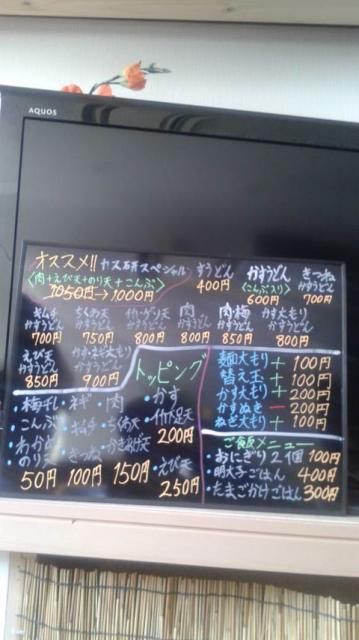 AQUOS
オススメ!! カス研スペシャル
〈肉+えび天+のり天+こんぶ〉
1050円→1,000円
すうどん
400円
かすうどん
〈こんぶ入り〉
600円
きつね
かすうどん
700円
キムチ
かすうどん
700円
ちくわ天
かすうどん
750円
かすうどん
800円
肉
かすうどん
800円
肉梅
かすうどん
850円
かす大もり
かすうどん
800円
えび天
かすうどん
850円
かすうどん
900円
トッピング
・梅干し
・こんぶ
・わかめ
・のり天
50円
・ネギ
・キムチ
・きつね
100円
・肉
・ちくわ天
・かきあげ天
150円
・かす
・竹下足天
200円
・えび天
250円
・麺大もり+100円
・替え玉+100円
・かす大もり+200円
・かすぬき-200円
・ねぎ大もり+100円
ご飯メニュー
・おにぎり2個100円
・明太子ごはん400円
・たまごかけごはん300円